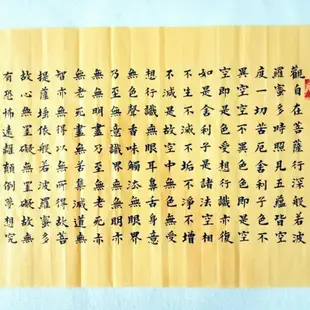 觀自在菩薩行深般若波
羅蜜多時照見五蘊皆空
度一切苦厄舍利子色不
異空空不異色色即是空
空即是色受想行識亦復
如是舍利子是諸法空相
不生不滅不垢不淨不增
不減是故空中無色無受
想行識無眼耳鼻舌身意
無色聲香味觸法無眼界
乃至無意識界無無明亦
無無明盡乃至無老死亦
無老死盡無苦集滅道無
智亦無得以無所得故菩
提薩埵依般若波羅蜜多
故心無罣礙無罣礙故無
有恐怖遠離顛倒夢想究